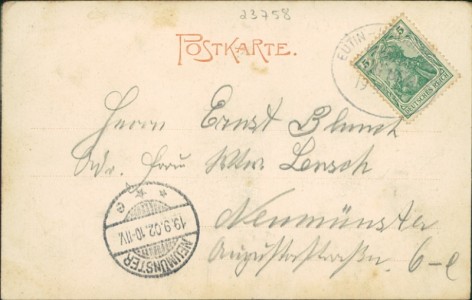 23758
POSTKARTE.
EUTIN
5 5
DEUTSCHES REICH
Herrn Ernst Blunck
Adr. Frau Wwe Lensch
Neumünster
NEUMÜNSTER
19.9.02.10-11V.